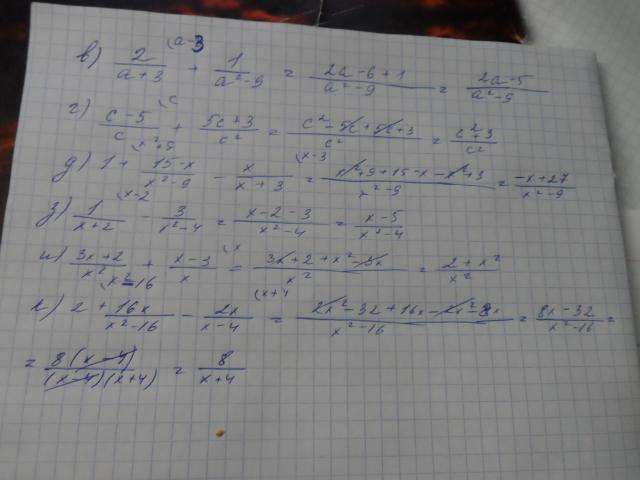 в) 2/(a+3) (a-3 + 1/(a²-9) = (2a-6+1)/(a²-9) = (2a-5)/(a²-9)
г) (c-5)/c (c + (5c+3)/c² = (c²-5c+5c+3)/c² = (c²+3)/c²
д) 1 (x²+9 + (15-x)/(x²-9) - x/(x+3) (x-3 = (x²+9+15-x-x²+3)/(x²-9) = (-x+27)/(x²-9)
з) 1/(x+2) (x-2 - 3/(x²-4) = (x-2-3)/(x²-4) = (x-5)/(x²-4)
и) (3x+2)/x² + (x-3)/x (x = (3x+2+x²-3x)/x² = (2+x²)/x²
2 (x²-16 + 16x/(x²-16) - 2x/(x-4) (x+4 = (2x²-32+16x-2x²-8x)/(x²-16) = (8x-32)/(x²-16) =
= 8(x-4)/((x-4)(x+4)) = 8/(x+4)